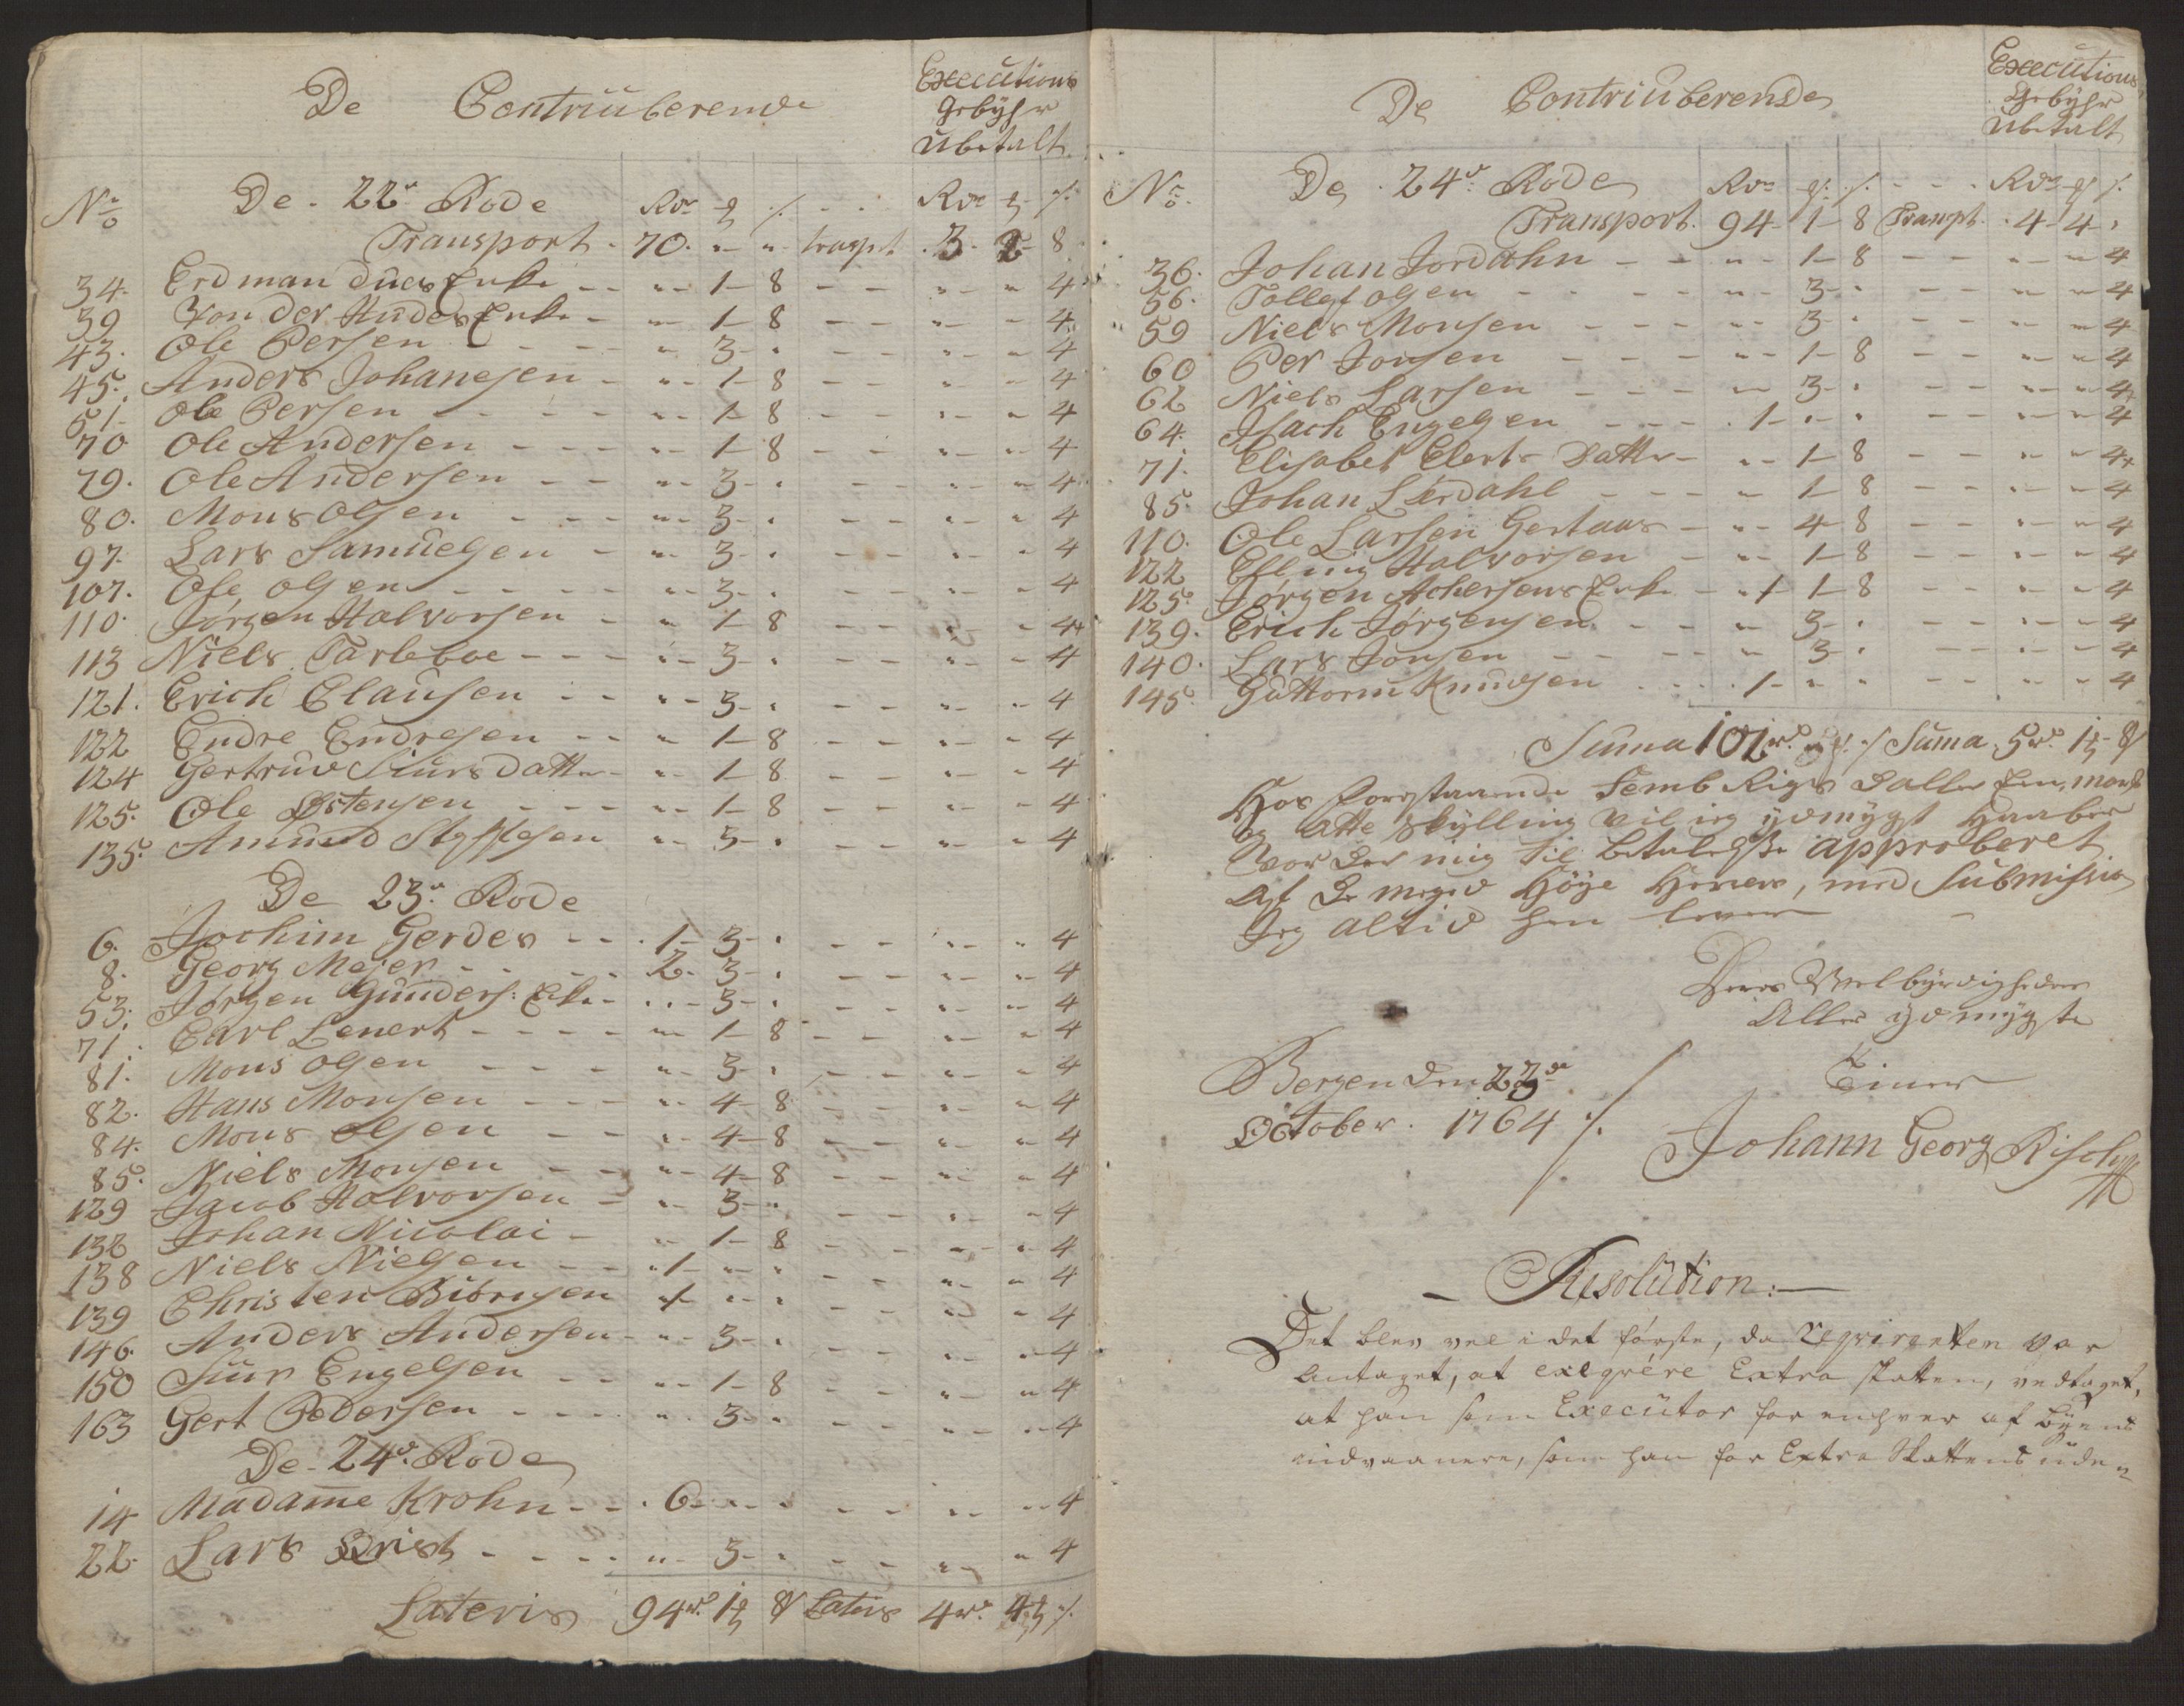 De Contriuberende
Executions
Gebyhr
Ubetalt
No De 22de Rode Rdr ß - - Rdr ß
Transport 70. " " transpt 3. 2 8
34. Erdman Dues Enke - - " 1 8 - - " " 4
39 Von der Hudes Enke - " 1 8 - - " " 4
43. Ole Persen - - - " 3 " - - " " 4
45. Anders Johanesen - " 1 8 - - " " 4
51 Ole Persen - - - " 1 8 - - " " 4
70 Ole Andersen - - - " 1 8 - - " " 4
79. Ole Andersen - - " 3 " - - " " 4
80. Mons Olsen - - - " 3 " - - " " 4
97. Lars Samuelsen - " 3 " - - " " 4
107. Ole Olsen - - - " 3 " - - " " 4
110. Jørgen Halvorsen - " 1 8 - - " " 4
113 Niels Tarleboe - - - " 3 " - - " " 4
121. Erich Clausen - - " 3 " - - " " 4
122 Endre Endresen - - " 1 8 - - " " 4
124 Gertrud Siursdatter - " 1 8 - - " " 4
125. Ole Østensen - - - " 1 8 - - " " 4
135. Amund " 3 " - - " " 4
De 23de Rode
6. Jochim Gerdes - - 1 3 " - - " " 4
8. Georg Mejer - - - 2 3 " - - " " 4
53. Jørgen Gunders: Enke - " 3 " - - " " 4
71. Carl Lenert - - - - " 1 8 - - " " 4
81. Mons Olsen - - - " 3 " - - " " 4
82. Hans Monsen - - - " 4 8 - - " " 4
84. Mons Olsen - - " 4 8 - - " " 4
85. Niels Monsen - - " 4 8 - - " " 4
129 Jacob Halvorsen - " 3 " - - " " 4
132 Johan Nicolai - " 1 8 - - " " 4
138 Niels Nielsen - - 1 " " - - " " 4
139 Christen Biørnsen 1 " " - - " " 4
146. Anders Andersen - " 3 " - - " " 4
150 Siur Engelsen - - " 1 8 - - " " 4
163 Gert Pedersen - - - " 3 " - - " " 4
De 24de Rode
14 Madame Krohn - - 6 " " - - " " 4
22. Lars Qvist - - - - " 3 " - - " " 4
Lateris 94rd 1 8ß Lateris 4rd 4
De Contriuberende
Executions
Gebyhr
Ubetalt
No De 24de Rode Rdr ß - - Rdr ß
Transport. 94 1 8 Transpt. 4 4 "
36. Johan Jordahn - - " 1 8 - - " " 4
56. Tollef Olsen - - - " 3 " - - " " 4
59 Niels Monsen - - - " 3 " - - " " 4
60 Per Jonsen - - - " 1 8 - - " " 4
62 Niels Larsen - - - " 3 " - - " " 4
64. Isach Engelsen - - - 1 " " - - " " 4
71. Elisabet Elerts Datter - " 1 8 - - " " 4
85. Johan Lerdahl - - - " 1 8 - - " " 4
110. Ole Larsen Gertaas - " 4 8 - - " " 4
122 Halvorsen - " 1 8 - - " " 4
125. Jørgen Achersens Enke - 1 1 8 - - " " 4
139. Erich Jørgensen - - - " 3 " - - " " 4
140. Lars Jonsen - - - " 3 " - - " " 4
145. Guttorm Knudsen - - 1 " " - - " " 4
Suma 102rd Suma 5rd 1 8ß
Hos foregstaaende Femb Rigs Daller Een mark
og Otte Skylling vil ieg ydmygst Haaber
vorder mig til betalelße approberet
af De meget Høye Herrer, med Submission
Jeg altid hen lever
Deres Velbyrdigheders
Aller ydmygste
Tiener
Johann Georg Risch
Bergen den 23de
October. 1764
Resolution:
Det blev vel i det første, da reqvirenten var
antaget, at exeqvere Extra skatten, vedtaget,
at han som Executor for enhver af Byens
indvaanere, som han for Extra Skattens ude-